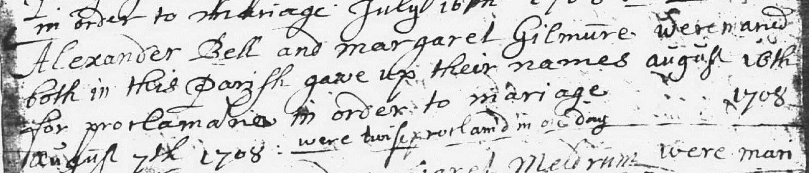 in order to mariage July 16th 1708
Alexander Bell and margaret Gilmure were maried
both in this Parish gave up their names august 16th
for proclamatione in order to mariage 1708
august 7th 1708 were twise proclamd in on day
Meldrum were mari